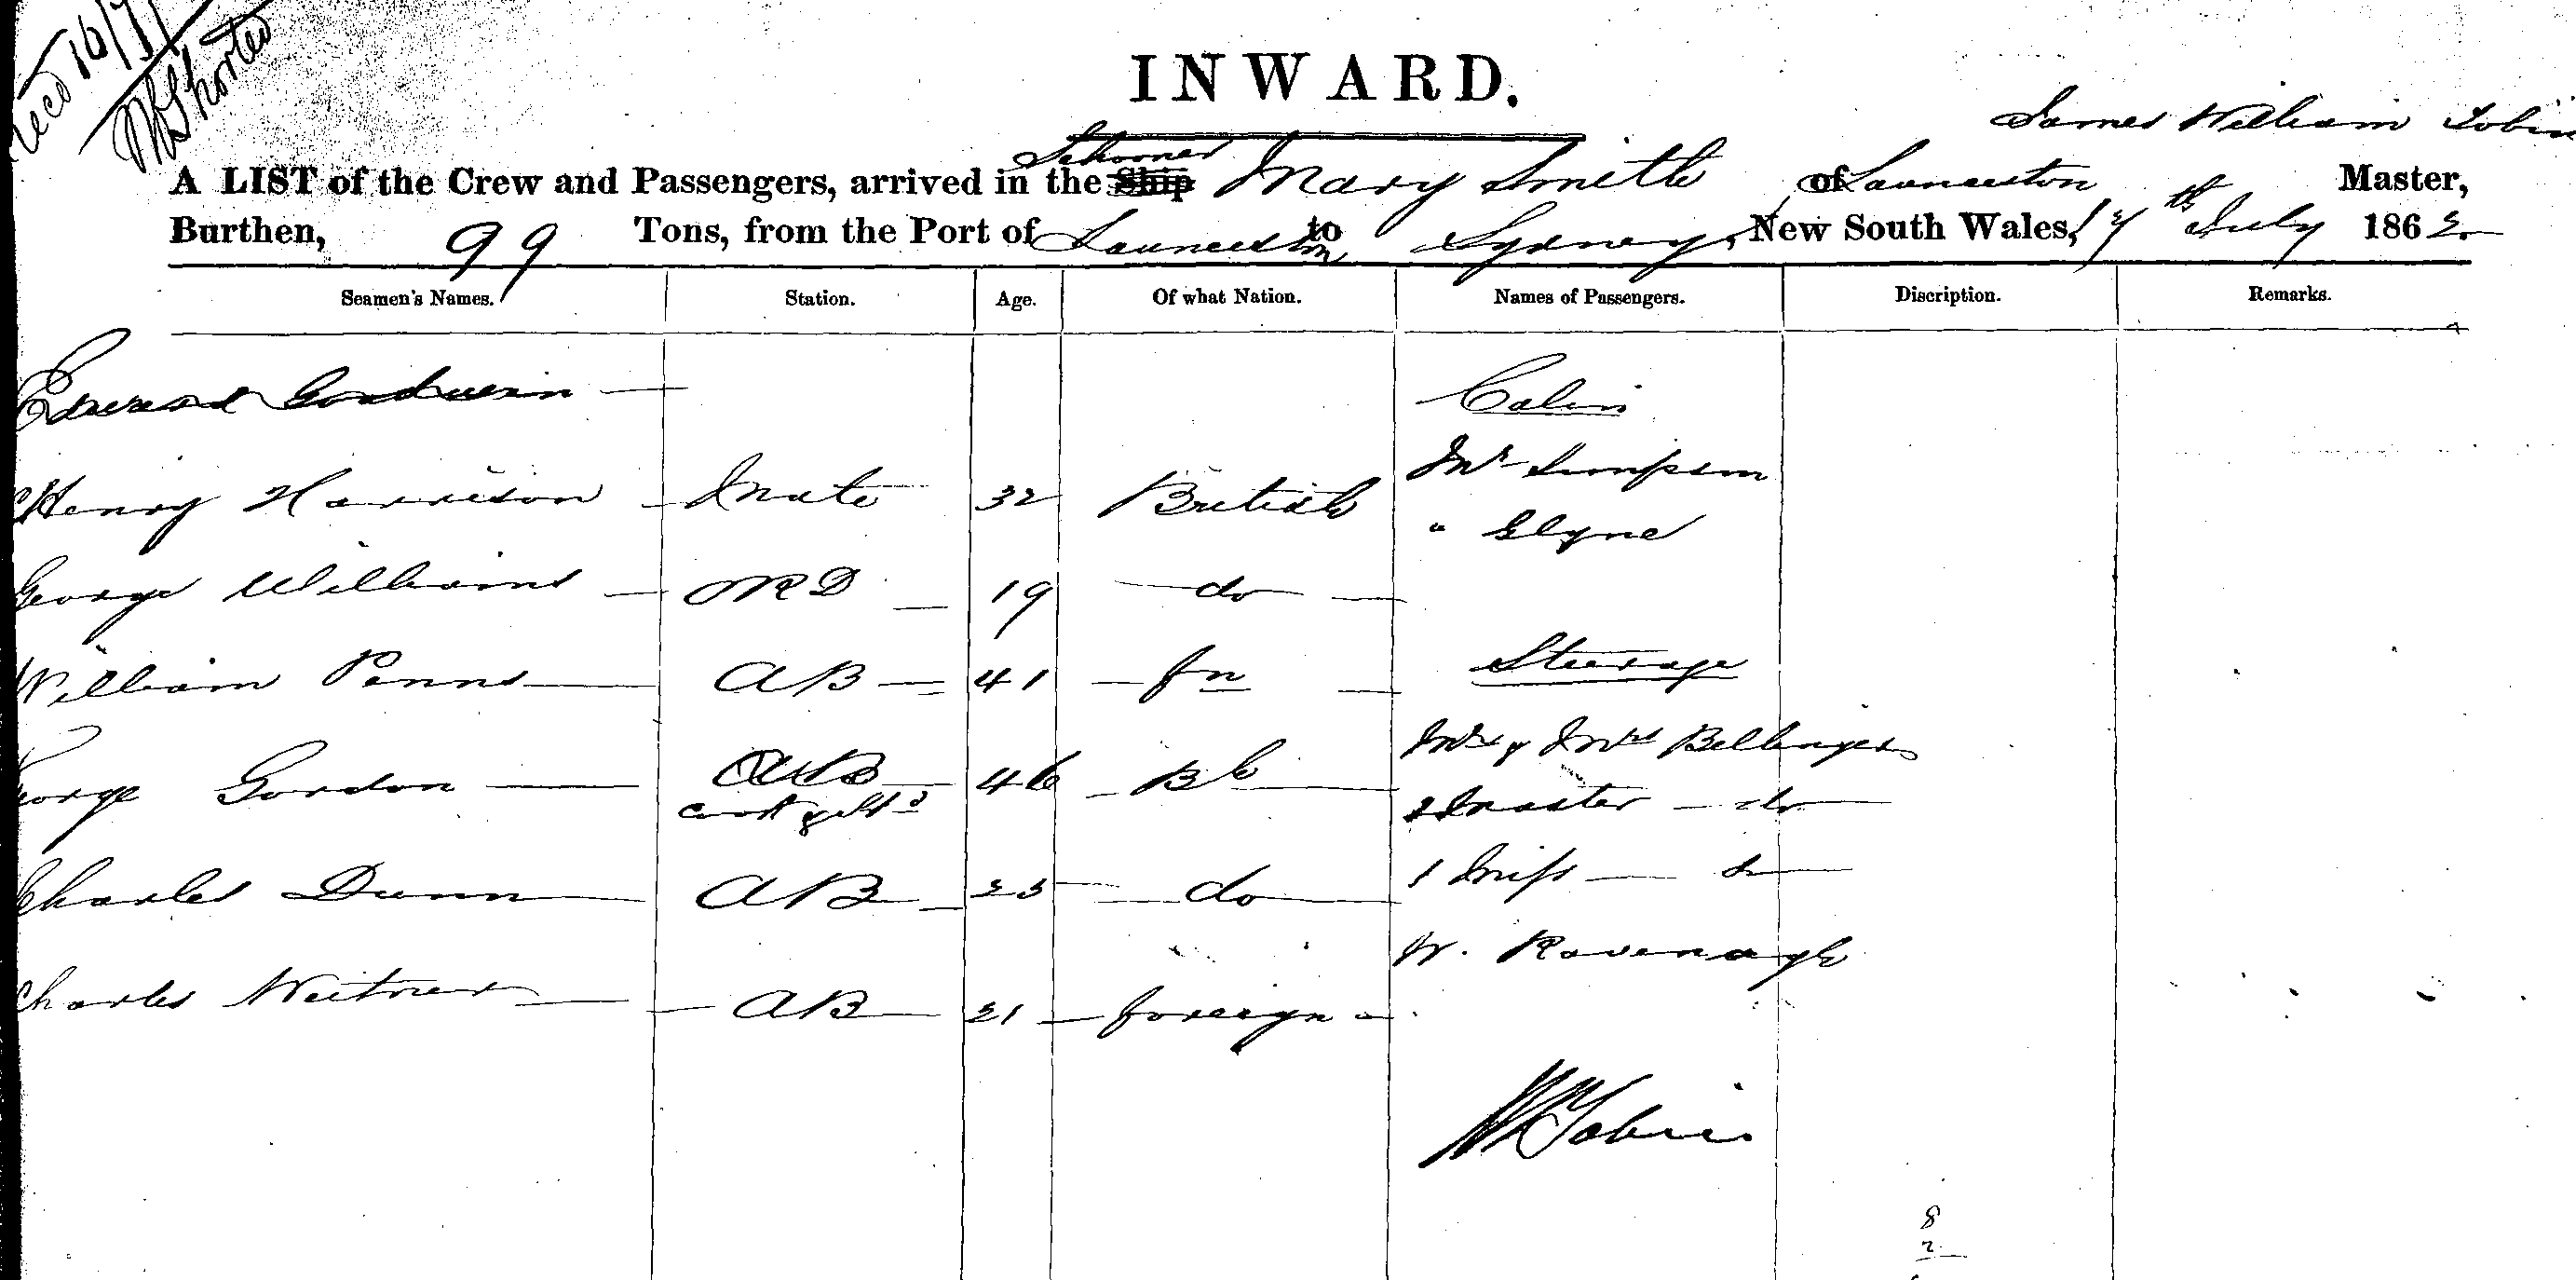 Recd 16/7/
INWARD.
James William Tobin
Schooner
A LIST of the Crew and Passengers, arrived in the Ship Mary Smith of Launceston Master,
Burthen, 99 Tons, from the Port of Launceston to Sydney, New South Wales, 17th July 1862.
Seamen's Names. Station. Age. Of what Nation. Names of Passengers. Discription. Remarks.
Edward Goodwin Cabin
Mr Simpson
Henry Harrison Mate 32 British
" Glyne
George Williams ORD 19 do
William Penns AB 41 fn Steerage
Mr & Mrs Bellinger
George Gordon AB 46 Bh
cook & std 2 Master do
Charles Dunn AB 23 do 1 Miss do
W. Kavenagh
Charles AB 21 foreign
Tobin
8
2